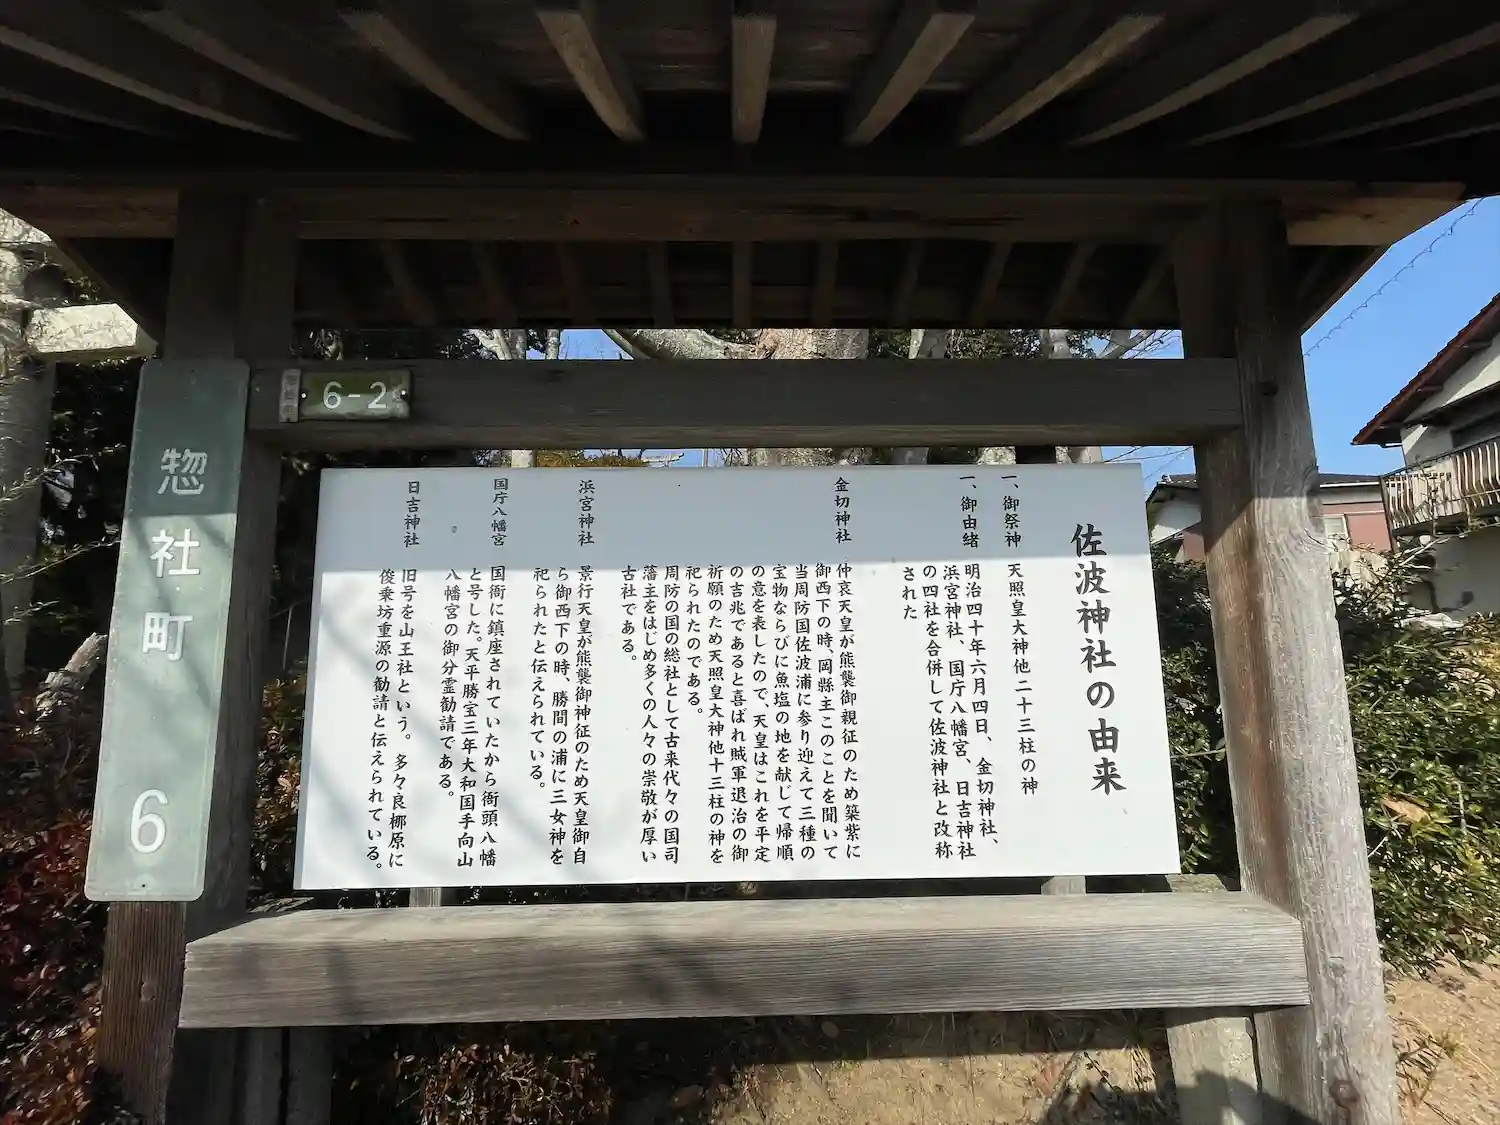 佐波神社の由来
一、御祭神　天照皇大神他二十三柱の神
一、御由緒　明治四十年六月四日、金切神社、
浜宮神社、国庁八幡宮、日吉神社
の四社を合併して佐波神社と改称
された
金切神社　仲哀天皇が熊襲御親征のため築紫に
御西下の時、岡縣主このことを聞いて
当周防国佐波浦に参り迎えて三種の
宝物ならびに魚塩の地を献じて帰順
の意を表したので、天皇はこれを平定
の吉兆であると喜ばれ賊軍退治の御
祈願のため天照皇大神他十三柱の神を
祀られたのである。
周防の国の総社として古来代々の国司
藩主をはじめ多くの人々の崇敬が厚い
古社である。
浜宮神社　景行天皇が熊襲御神征のため天皇御自
ら御西下の時、勝間の浦に三女神を
祀られたと伝えられている。
国庁八幡宮　国衙に鎮座されていたから衙頭八幡
と号した。天平勝宝三年大和国手向山
八幡宮の御分霊勧請である。
日吉神社　旧号を山王社という。多々良梛原に
俊乗坊重源の勧請と伝えられている。
6-2
惣社町　6